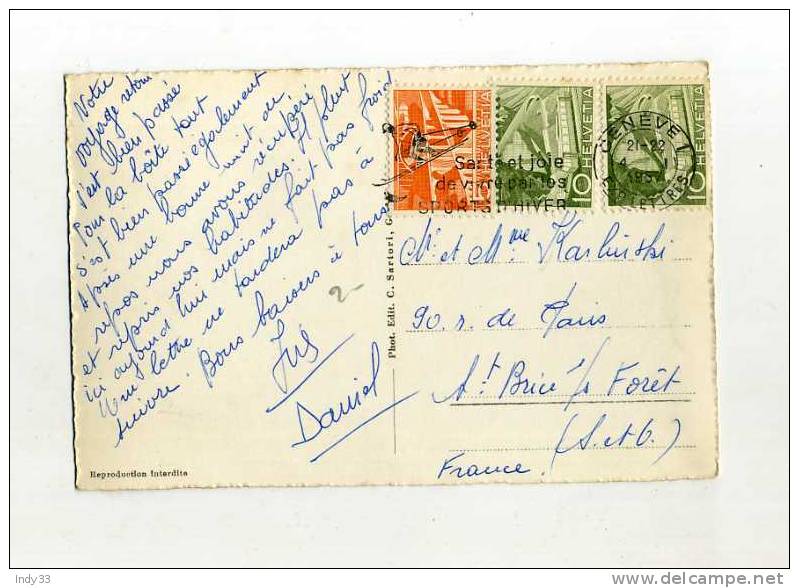 Notre
voyage retour
s'est bien passé
Pour la boîte tout
s'est bien passé également
Après une bonne nuit de
repos nous avons récupéré
et repris nos habitudes. Il pleut
ici aujourd'hui mais ne fait pas froid
Une lettre ne tardera pas à
suivre. Bons baisers à tous
Daniel
2-
Reproduction interdite
Phot. Edit. C. Sartori, G
HELVETIA
5
HELVETIA
10
HELVETIA
10
Santé et joie
de vivre par les
SPORTS D'HIVER
GENÈVE 1
21-22
4. I
195
EXP. LETTRES
Mr et Mme Karlinski
90. r. de Paris
St Brice s/s Forêt
(S. et O.)
France.
Indy33
http://www.delcampe.net